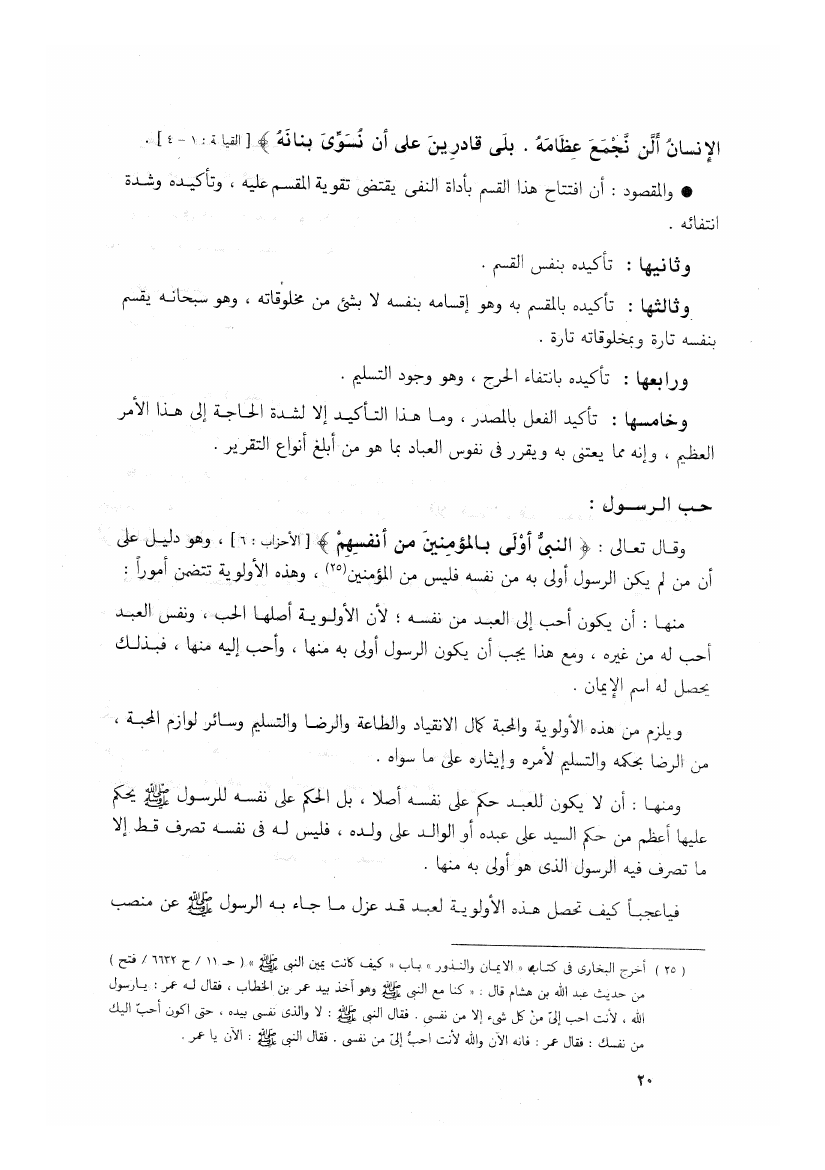 الإنسانُ أَلَّن نَّجْمَعَ عِظَامَهُ . بلَى قادرِينَ على أن نُسَوِّىَ بنانَهُ ﴾ [ القيامة : ١ – ٤ ] .
● والمقصود : أن افتتاح هذا القسم بأداة النفى يقتضى تقوية المقسم عليه ، وتأكيده وشدة
انتفائه .
وثانيها : تأكيده بنفس القسم .
وثالثها : تأكيده بالمقسم به وهو إقسامه بنفسه لا بشئ من مخلوقاته ، وهو سبحانه يقسم
بنفسه تارة وبمخلوقاته تارة .
ورابعها : تأكيده بانتفاء الحرج ، وهو وجود التسليم .
وخامسها : تأكيد الفعل بالمصدر ، وما هذا التأكيد إلا لشدة الحاجة إلى هذا الأمر
العظيم ، وإنه مما يعتنى به ويقرر فى نفوس العباد بما هو من أبلغ أنواع التقرير .
حب الرسول :
وقال تعالى : ﴿ النبىُّ أوْلَى بالمؤمِنِينَ من أنفسِهِمْ ﴾ [ الأحزاب : ٦ ] ، وهو دليل على
أن من لم يكن الرسول أولى به من نفسه فليس من المؤمنين(٢٥) ، وهذه الأولوية تتضمن أموراً :
منها : أن يكون أحب إلى العبد من نفسه ؛ لأن الأولوية أصلها الحب ، ونفس العبد
أحب له من غيره ، ومع هذا يجب أن يكون الرسول أولى به منها ، وأحب إليه منها ، فبذلك
يحصل له اسم الإيمان .
ويلزم من هذه الأولوية والمحبة كمال الانقياد والطاعة والرضا والتسليم وسائر لوازم المحبة ،
من الرضا بحكمه والتسليم لأمره وإيثاره على ما سواه .
ومنها : أن لا يكون للعبد حكم على نفسه أصلا ، بل الحكم على نفسه للرسول ﷺ يحكم
عليها أعظم من حكم السيد على عبده أو الوالد على ولده ، فليس له فى نفسه تصرف قط إلا
ما تصرف فيه الرسول الذى هو أولى به منها .
فياعجباً كيف تحصل هذه الأولوية لعبد قد عزل ما جاء به الرسول ﷺ عن منصب
( ٢٥ ) أخرج البخارى فى كتاب « الايمان والنذور » باب « كيف كانت يمين النبى ﷺ » ( حـ ١١ / ح ٦٦٣٢ / فتح )
من حديث عبد الله بن هشام قال : « كنا مع النبى ﷺ وهو آخذ بيد عمر بن الخطاب ، فقال له عمر : يارسول
الله ، لأنت احب إلىّ منْ كل شىء إلا من نفسى . فقال النبى ﷺ : لا والذى نفسى بيده ، حتى اكون أحبّ اليك
من نفسك : فقال عمر : فانه الآن والله لأنت احبُّ إلىّ من نفسى . فقال النبى ﷺ : الآن يا عمر .
٢٠